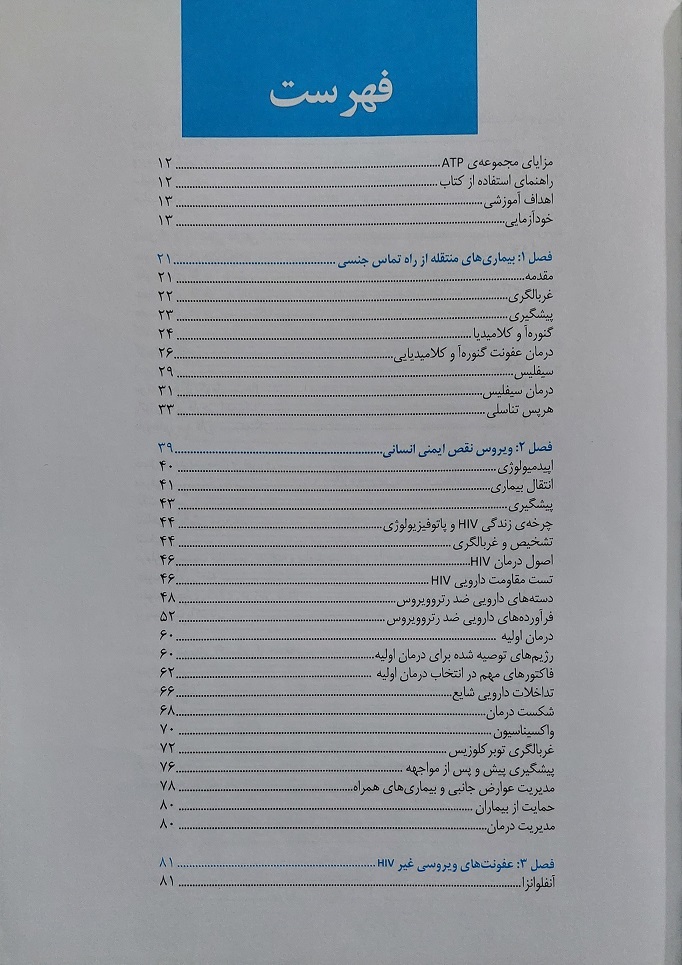 فهرست
مزایای مجموعه‌ی ATP ........ ۱۲
راهنمای استفاده از کتاب ........ ۱۲
اهداف آموزشی ........ ۱۳
خودآزمایی ........ ۱۳
فصل ۱: بیماری‌های منتقله از راه تماس جنسی ........ ۲۱
مقدمه ........ ۲۱
غربالگری ........ ۲۲
پیشگیری ........ ۲۳
گنوره‌آ و کلامیدیا ........ ۲۴
درمان عفونت گنوره‌آ و کلامیدیایی ........ ۲۶
سیفلیس ........ ۲۹
درمان سیفلیس ........ ۳۱
هرپس تناسلی ........ ۳۳
فصل ۲: ویروس نقص ایمنی انسانی ........ ۳۹
اپیدمیولوژی ........ ۴۰
انتقال بیماری ........ ۴۱
پیشگیری ........ ۴۳
چرخه‌ی زندگی HIV و پاتوفیزیولوژی ........ ۴۴
تشخیص و غربالگری ........ ۴۴
اصول درمان HIV ........ ۴۶
تست مقاومت دارویی HIV ........ ۴۶
دسته‌های دارویی ضد رتروویروس ........ ۴۸
فرآورده‌های دارویی ضد رتروویروس ........ ۵۲
درمان اولیه ........ ۶۰
رژیم‌های توصیه شده برای درمان اولیه ........ ۶۰
فاکتورهای مهم در انتخاب درمان اولیه ........ ۶۲
تداخلات دارویی شایع ........ ۶۶
شکست درمان ........ ۶۸
واکسیناسیون ........ ۷۰
غربالگری توبرکلوزیس ........ ۷۲
پیشگیری پیش و پس از مواجهه ........ ۷۶
مدیریت عوارض جانبی و بیماری‌های همراه ........ ۷۸
حمایت از بیماران ........ ۸۰
مدیریت درمان ........ ۸۰
فصل ۳: عفونت‌های ویروسی غیر HIV ........ ۸۱
آنفلوانزا ........ ۸۱